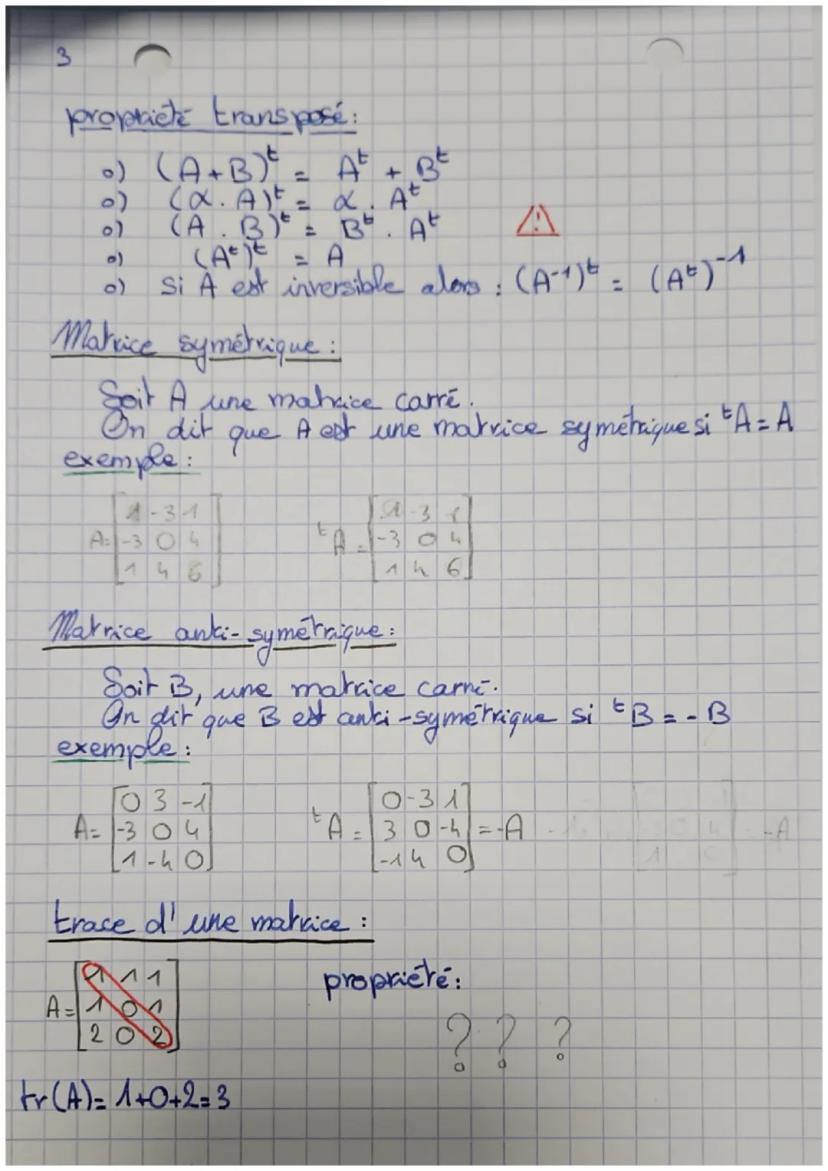 3
propriété transposé :
o) (A + B)ᵗ = Aᵗ + Bᵗ
o) (α . A)ᵗ = α . Aᵗ
o) (A . B)ᵗ = Bᵗ . Aᵗ ⚠
o) (Aᵗ)ᵗ = A
o) Si A est inversible alors : (A⁻¹)ᵗ = (Aᵗ)⁻¹
Matrice symétrique :
Soit A une matrice carré.
On dit que A est une matrice symétrique si ᵗA = A
exemple :
1 -3 1 1 -3 1
A= -3 0 4 ᵗA = -3 0 4
1 4 6 1 4 6
Matrice anti-symétrique :
Soit B, une matrice carré.
On dit que B est anti-symétrique si ᵗB = - B
exemple :
0 3 -1 0 -3 1
A= -3 0 4 ᵗA = 3 0 -4 = -A -A
1 -4 0 -1 4 0
trace d'une matrice :
1 1 1 propriété :
A= 1 0 1
2 0 2 ? ? ?
tr(A)= 1+0+2=3